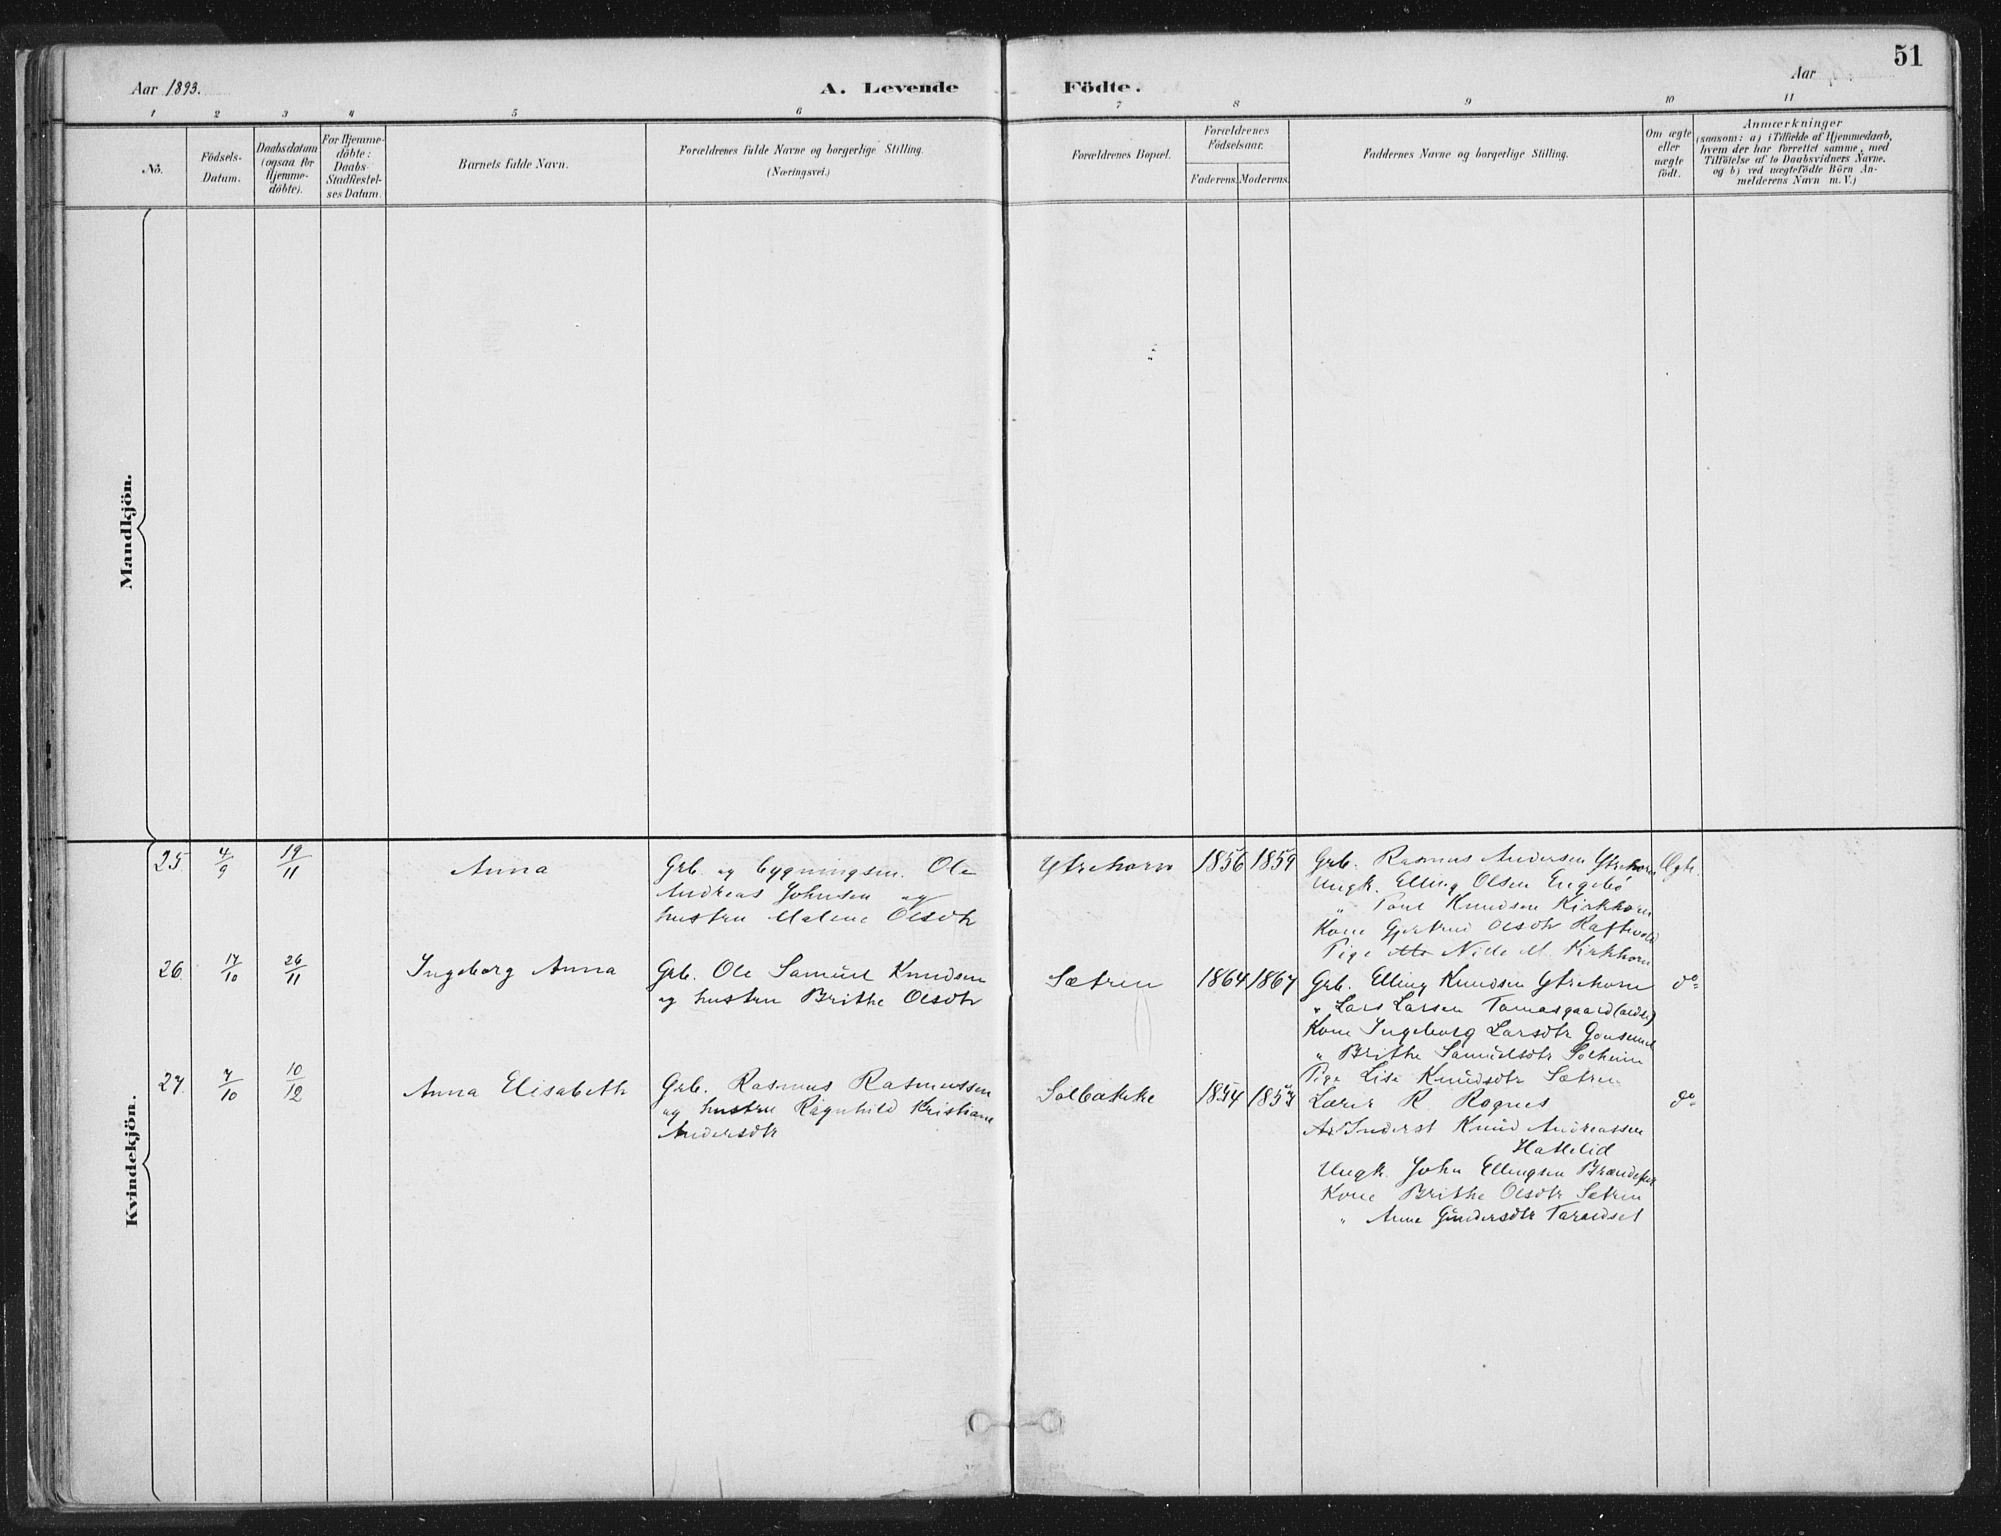 51
Aar 1893.
A. Levende Födte.
Aar
1 2 3 4 5 6 7 8 9 10 11
No.
Födsels-
Datum.
Daabsdatum
(ogsaa for
Hjemme-
döbte).
For Hjemme-
döbte:
Daabs-
Stadfæstel-
ses Datum.
Barnets fulde Navn.
Forældrenes fulde Navne og borgerlige Stilling.
(Næringsvei.)
Forældrenes Bopæl.
Forældrenes
Födselsaar.
Faderens. Moderens.
Faddernes Navne og borgerlige Stilling.
Om ægte
eller
uægte
födt.
Anmærkninger
(saasom: a) i Tilfælde af Hjemmedaab,
hvem der har forrettet samme, med
Tilföielse af to Daabsvidners Navne.
og b) ved uægtefödte Börn An-
melderens Navn m. V.)
Mandkjön.
Kvindekjön.
25. 4/9 19/11
Anna
Grb. og bygningsm. Ole
Andreas Johnsen og
hustru Malene Olsdtr
Ytrehorn
1856 1859
Grb. Rasmus Andersen Ytrehorn
Ungk. Elling Olsen Engebö
" Poul Knudsen Kirkhorn
Kone Gjertrud Olsdtr
Pige Nille M. Kirkhorn
Ægte.
26. 17/10 26/11
Ingeborg Anna
Grb. Ole Samuel Knudsen
og hustru Brithe Olsdtr
Sætren
1864 1867
Grb. Elling Knudsen Ytrehorn
" Lars Larsen Tomasgaard
Kone Ingeborg Larsdtr
" Brithe Samuelsdtr Solheim
Pige Lise Knudsdtr Sætren
do
27. 7/10 10/12
Anna Elisabeth
Grb. Rasmus Rasmussen
og hustru Ragnhild Kristiane
Andersdtr
Solbakke
1854 1853
Lærer R Rognes
Knud Andreassen
Hattelid
Ungk. John Ellingsen
Kone Brithe Olsdtr Sætren
" Anne Gundersdtr Taraldset
do